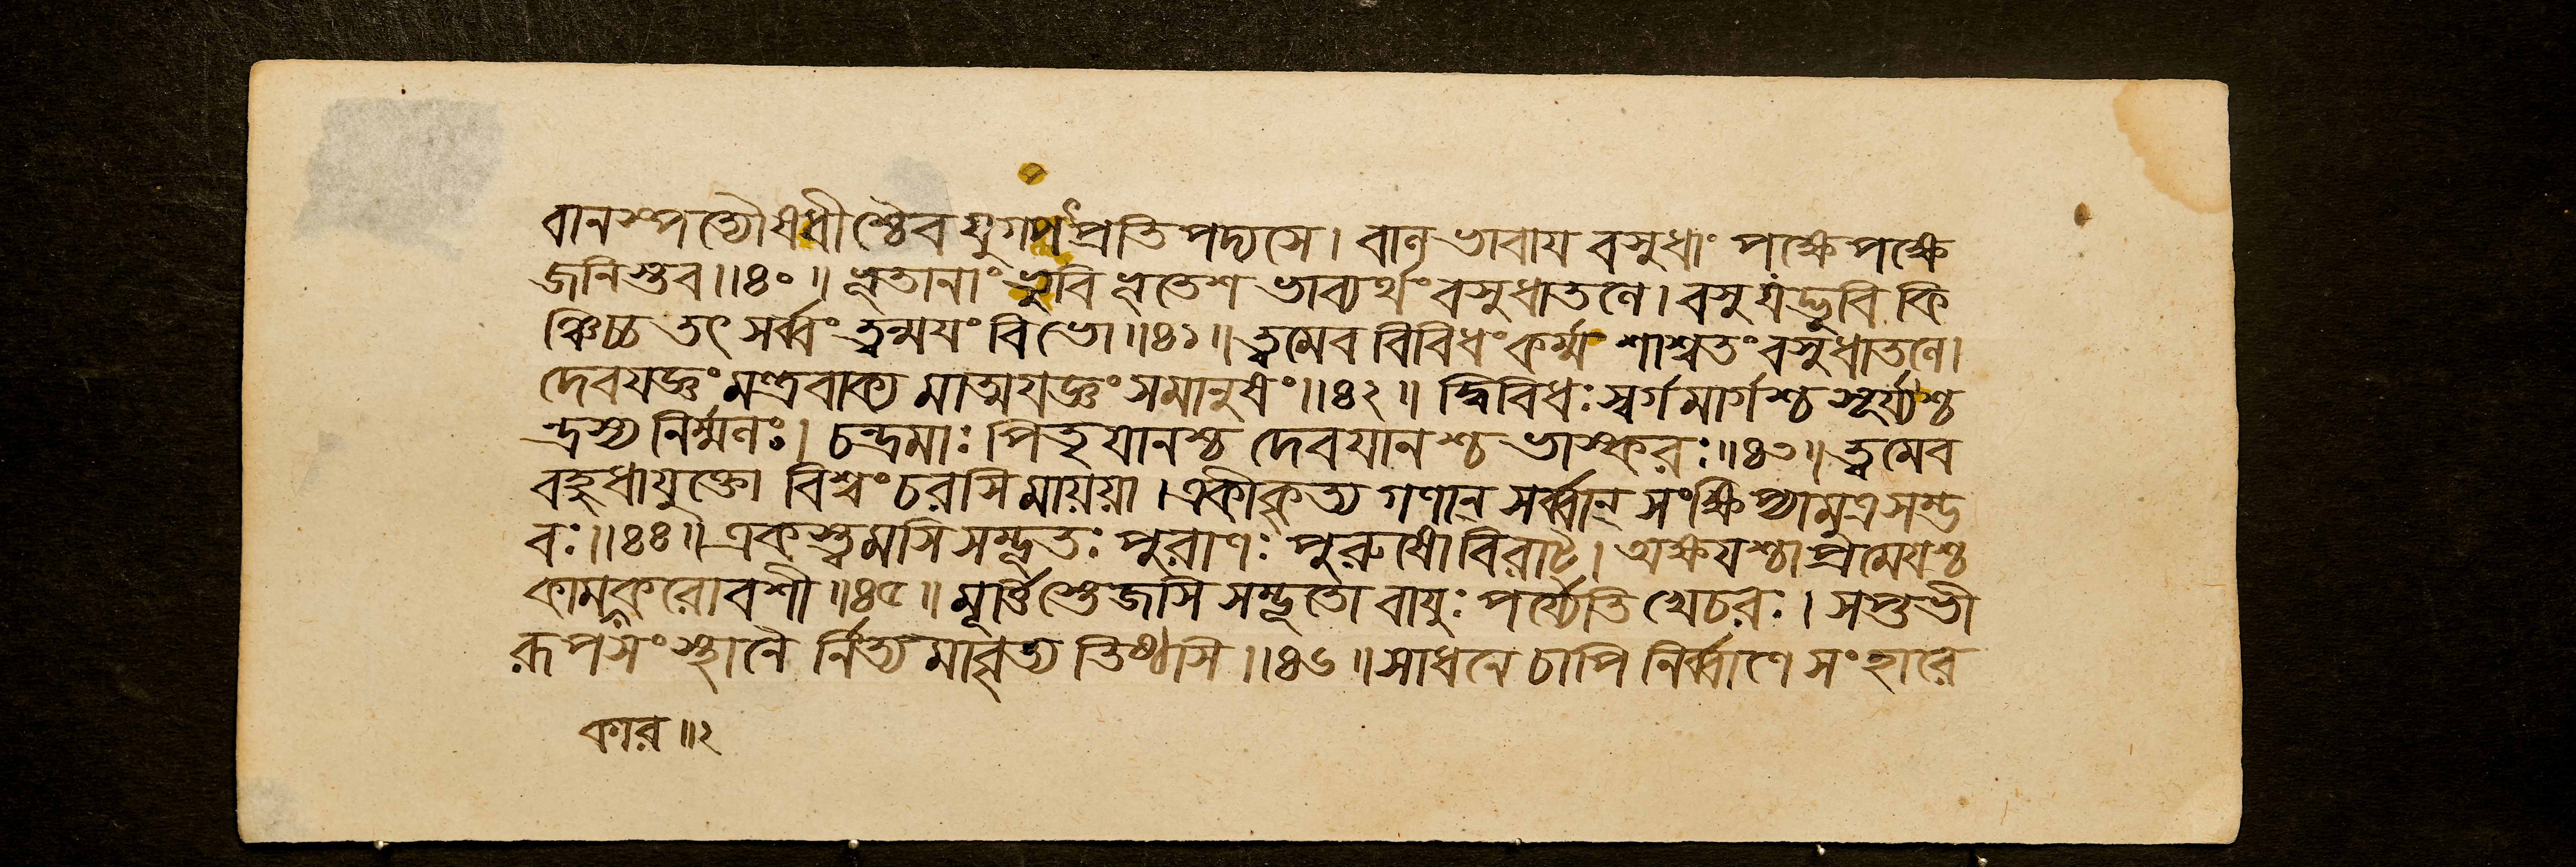 বানস্পত্যৌষধীশ্চৈব যুগপৎপ্রতিপদ্যসে। বাল ভাবায বসুধাং পক্ষেপক্ষে
জনিস্তব॥৪০॥ ভূতানাং ভুবি ভূতেশ ভাব্যর্থং বসুধাতলে। বসু যদ্ভুবি কি
ঞ্চিচ্চ তৎ সর্ব্বং ত্বন্ময়ং বিভো॥৪১॥ ত্বমেব বিবিধং কর্ম্ম শাশ্বতং বসুধাতলে।
দেবযজ্ঞং মন্ত্রবাক্য মাত্মযজ্ঞং সমানুষং॥৪২॥ দ্বিবিধঃ স্বর্গমার্গশ্চ সূর্য্যশ্চ
ন্দ্রশ্চ নির্ম্মলঃ। চন্দ্রমাঃ পিতৃযানশ্চ দেবযানশ্চ ভাস্করঃ॥৪৩॥ ত্বমেব
বহুধাযুক্তো বিশ্বং চরসি মায়য়া। একীকৃত্য গণান্ সর্ব্বান্ সংক্ষিপ্যামুত্র সম্ভ
বঃ॥৪৪॥ একস্ত্বমসি সম্ভূতঃ পুরাণঃ পুরুষো বিরাট্। অক্ষযশ্চাপ্রমেযশ্চ
কামস্করো বশী॥৪৫॥ মূর্ত্তিস্তেজসি সম্ভূতো বাযুঃ পর্য্যেতি খেচরঃ। সপ্তভী
রূপসংস্থানৈ র্নিত্যমাবৃত্য তিষ্ঠসি॥৪৬॥ সাধনে চাপি নির্ব্বাণে সংহারে
কার॥২